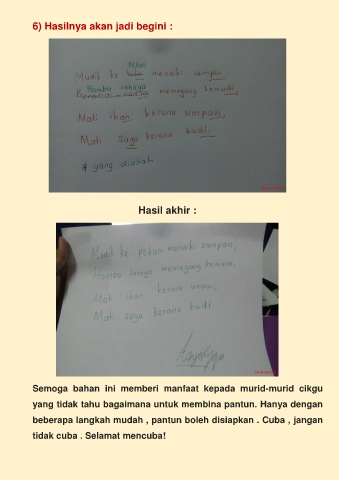 6) Hasilnya akan jadi begini :
Pekan
Mudik ke hulu menaiki sampan,
Hamba sahaya
memegang kemudi,
Mati ikan kerana umpan,
Mati saya kerana budi.
* yang diubah
Hasil akhir :
Mudik ke pekan menaiki sampan,
Hamba sahaya memegang kemudi,
Mati ikan kerana umpan,
Mati saya kerana budi
Semoga bahan ini memberi manfaat kepada murid-murid cikgu
yang tidak tahu bagaimana untuk membina pantun. Hanya dengan
beberapa langkah mudah , pantun boleh disiapkan . Cuba , jangan
tidak cuba . Selamat mencuba!